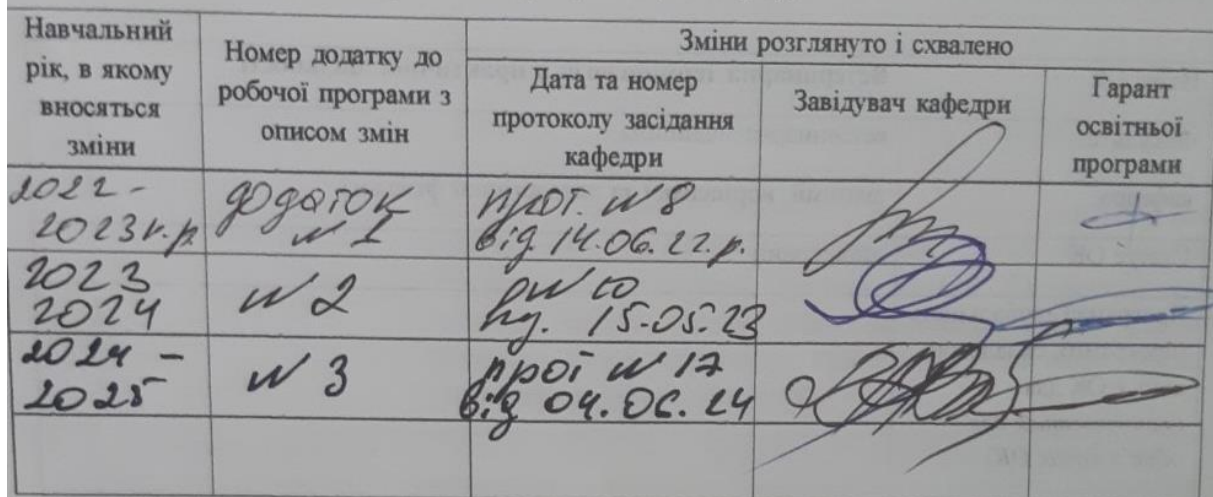 Навчальний
рік, в якому
вносяться
зміни
Номер додатку до
робочої програми з
описом змін
Зміни розглянуто і схвалено
Дата та номер
протоколу засідання
кафедри
Завідувач кафедри
Гарант
освітньої
програми
2022 -
2023 н.р.
додаток
№ 1
прот. №8
від 14.06.22.р.
2023
2024
№ 2
№ 10
15.05.23
2024 -
2025
№ 3
прот № 17
від 04.06.24